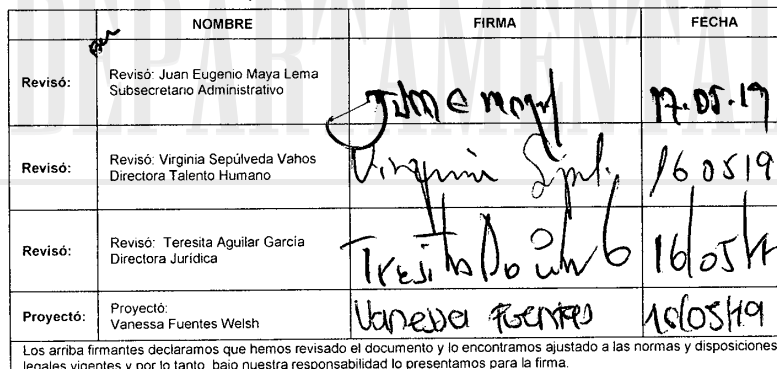 DEPARTAMENTAL
NOMBRE FIRMA FECHA
Revisó: Revisó: Juan Eugenio Maya Lema
Subsecretario Administrativo
17.05.19
Revisó: Revisó: Virginia Sepúlveda Vahos
Directora Talento Humano
Virginia 160519
Revisó: Revisó: Teresita Aguilar García
Directora Jurídica
Proyectó: Proyectó:
Vanessa Fuentes Welsh
Vanessa Fuentes
Los arriba firmantes declaramos que hemos revisado el documento y lo encontramos ajustado a las normas y disposiciones
legales vigentes y por lo tanto, bajo nuestra responsabilidad lo presentamos para la firma.